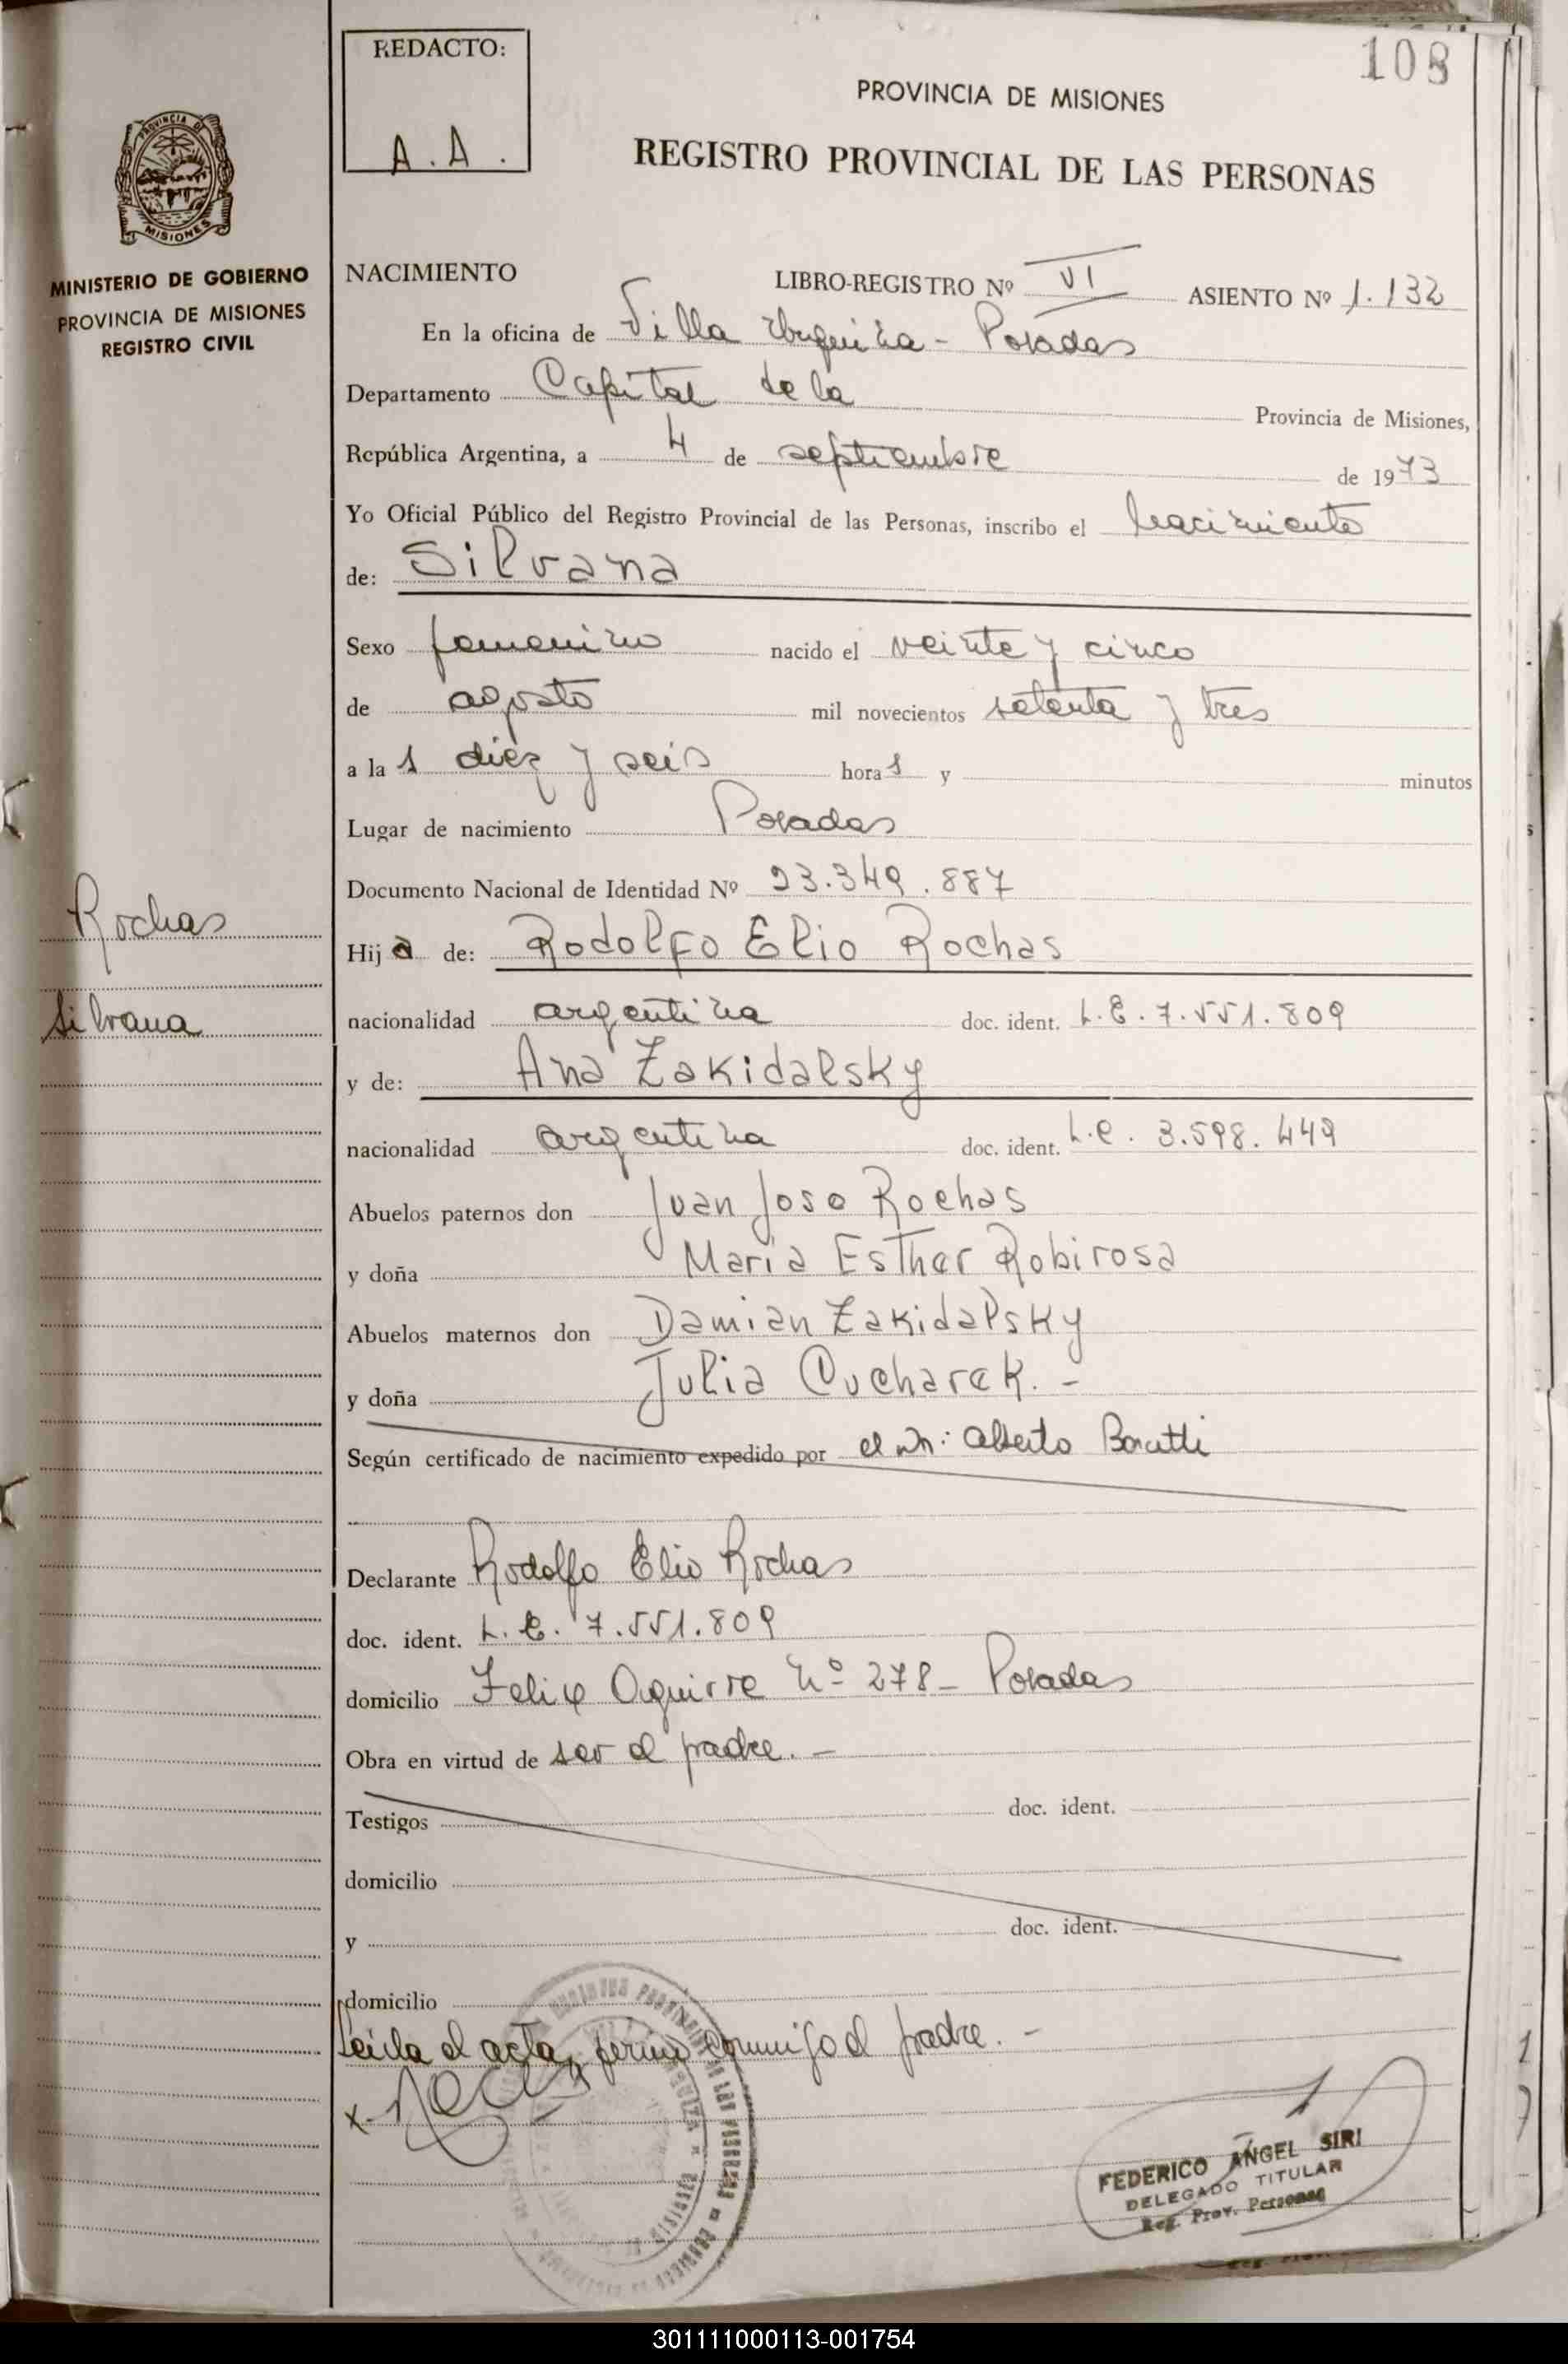 108
REDACTO:
A.A.
PROVINCIA DE MISIONES
REGISTRO PROVINCIAL DE LAS PERSONAS
PROVINCIA DE
MISIONES
MINISTERIO DE GOBIERNO
PROVINCIA DE MISIONES
REGISTRO CIVIL
NACIMIENTO LIBRO-REGISTRO Nº VI ASIENTO Nº 1.132
En la oficina de Villa Urquiza - Posadas
Departamento Capital de la Provincia de Misiones,
República Argentina, a 4 de septiembre de 1973
Yo Oficial Público del Registro Provincial de las Personas, inscribo el nacimiento
de: Silvana
Sexo femenino nacido el veinte y cinco
de agosto mil novecientos setenta y tres
a la s diez y seis hora s y minutos
Lugar de nacimiento Posadas
Documento Nacional de Identidad Nº 23.349.887
Rochas
Hij a de: Rodolfo Elio Rochas
Silvana
nacionalidad argentina doc. ident. L.E. 7.551.809
y de: Ana Zakidalsky
nacionalidad argentina doc. ident. L.C. 3.598.449
Abuelos paternos don Juan Jose Rochas
y doña Maria Esther Robirosa
Abuelos maternos don Damian Zakidalsky
y doña Julia Cucharek. -
Según certificado de nacimiento expedido por el Dr: Alberto
Declarante Rodolfo Elio Rochas
doc. ident. L.E. 7.551.809
domicilio Felix Aguirre Nº 278 - Posadas
Obra en virtud de ser el padre. -
Testigos doc. ident.
domicilio
y doc. ident.
domicilio
Leída el acta, firma conmigo el padre. -
x
FEDERICO ANGEL SIRI
DELEGADO TITULAR
Reg. Prov. Personas
301111000113-001754